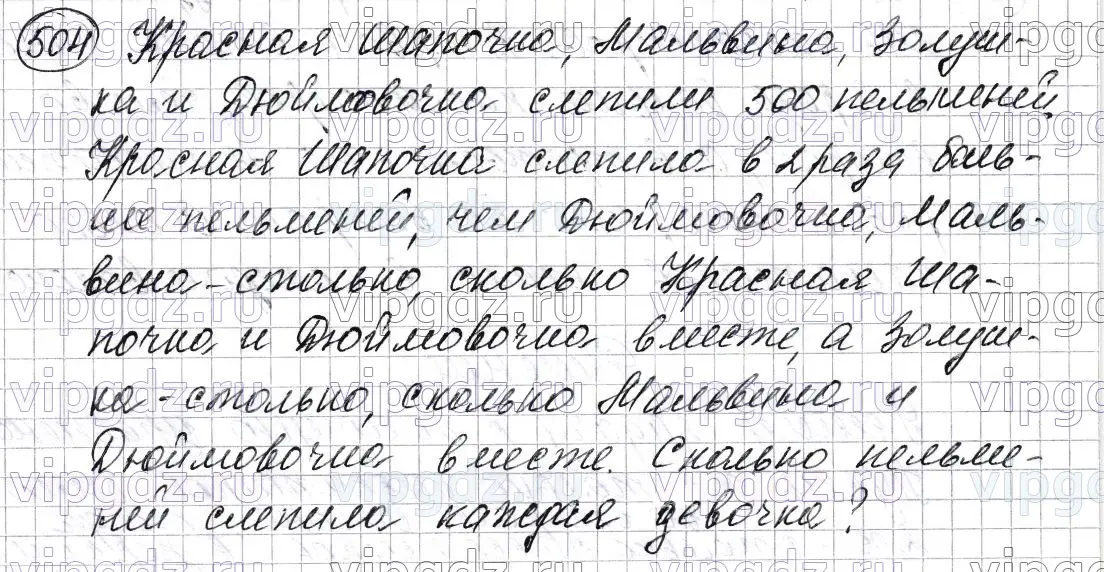 504 Красная Шапочка, Мальвина, Золуш-
ка и Дюймовочка слепили 500 пельменей
Красная Шапочка слепила в 2 раза боль-
ше пельменей, чем Дюймовочка, Маль-
вина - столько, сколько Красная Ша-
почка и Дюймовочка вместе, а Золуш-
ка - столько, сколько Мальвина и
Дюймовочка вместе. Сколько пельме-
ней слепила каждая девочка?
vipgdz.ru